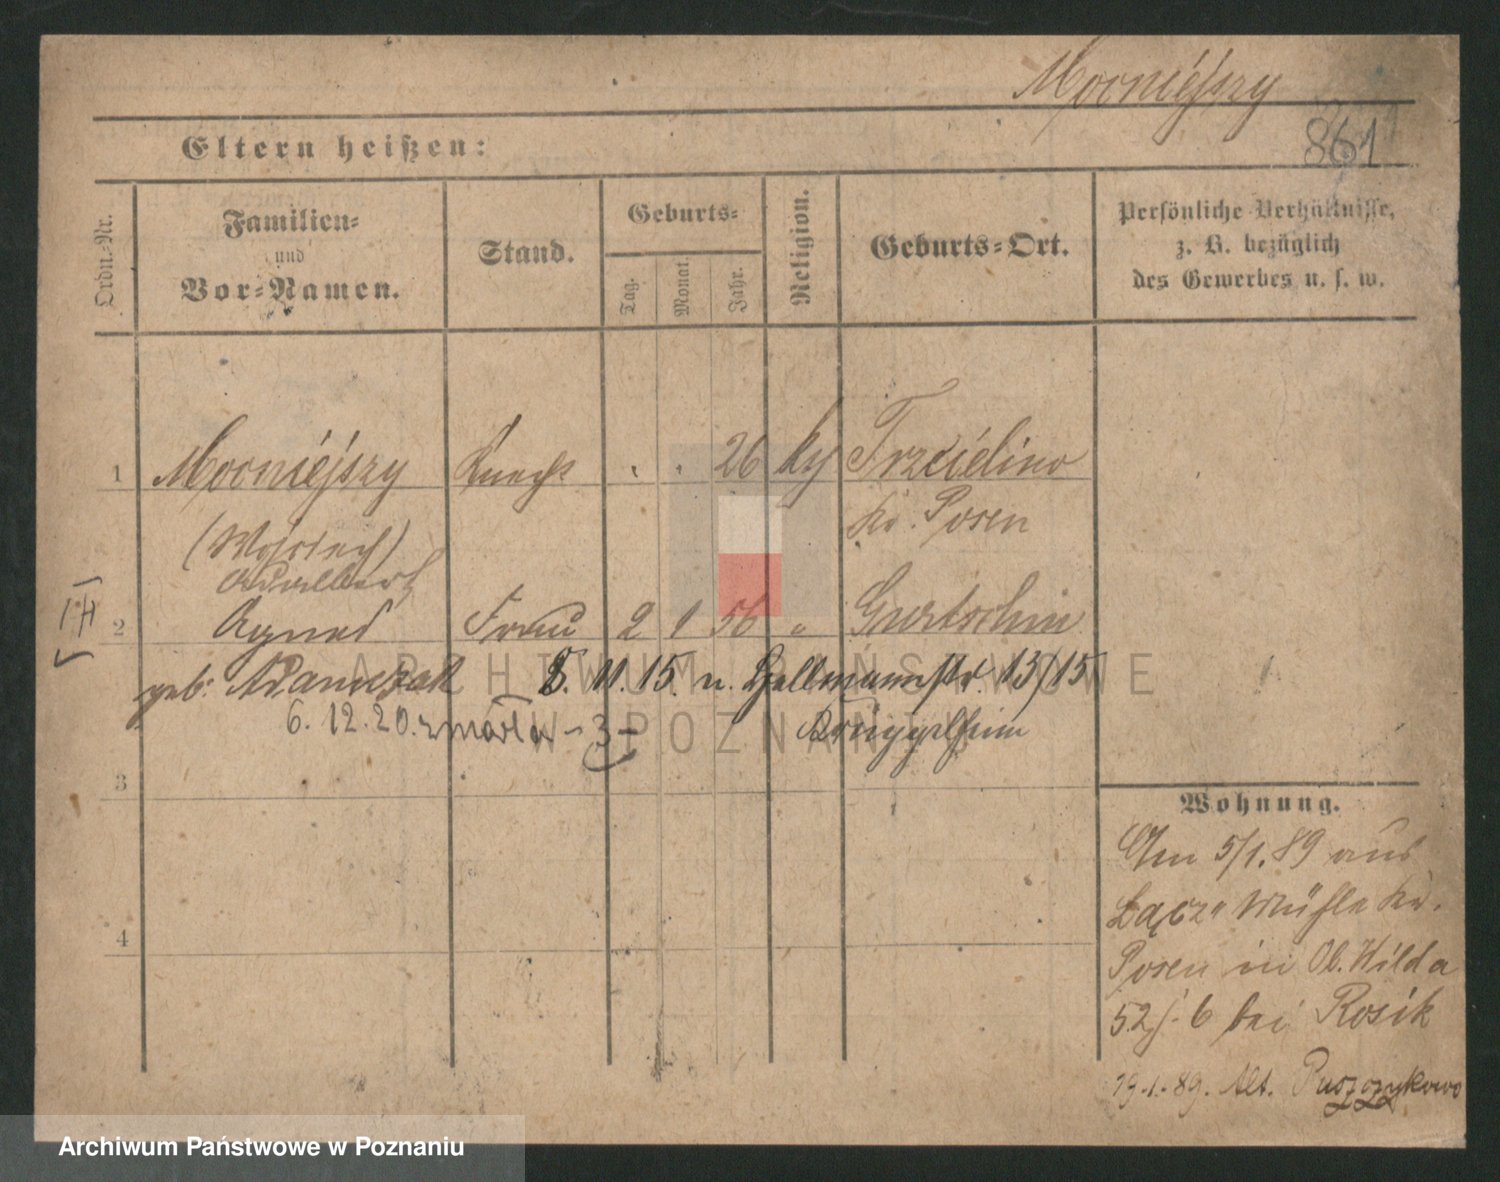 Mocniéjszy
861
Eltern heißen:
Ordn.-Nr.
Familien-
und
Vor-Namen.
Stand.
Geburts-
Tag.
Monat.
Jahr.
Religion.
Geburts-Ort.
Persönliche Verhältnisse,
z. B. bezüglich
des Gewerbes u. s. w.
1 Mocniéjszy Knecht 26 Trzciélino
Kr. Posen
(Wojciech)
Adalbert
2 Agnes Frau 2 1 56 " Gurtschin
geb: Adamczak 8. 11. 15. n. Hallmannstr. 13/15
6. 12. 20. zmarła - 3 - Brüggelheim
3
4
Wohnung.
Am 5/1.89 aus
Łącz" Mühle Kr.
Posen in Ob. Wilda
52/6 bei Rosik
19.1.89. Alt. Puszczykowo
ARCHIWUM PAŃSTWOWE
W POZNANIU
Archiwum Państwowe w Poznaniu